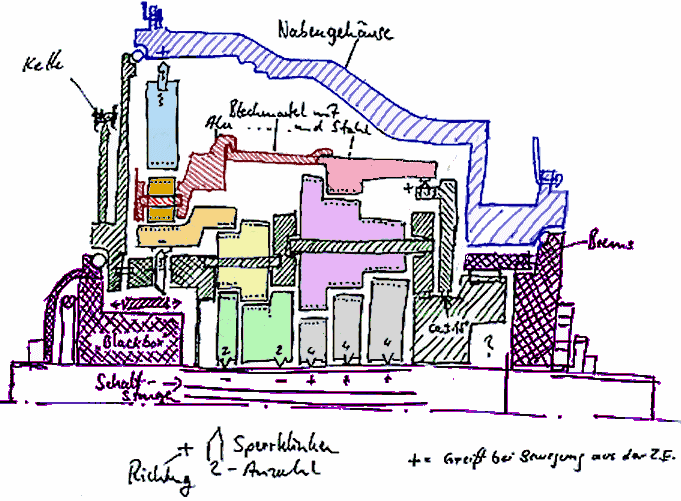 Nabengehäuse
Kette
Blechmantel mit
Alu ...... und Stahl
+
+
Brems
"Blackbox"
2 2 4 4 4
?
Schalt-
stange
- - + + +
+ Sperrklinken
Richtung 2-Anzahl
+ = Greift bei Bewegung aus der Z.E.